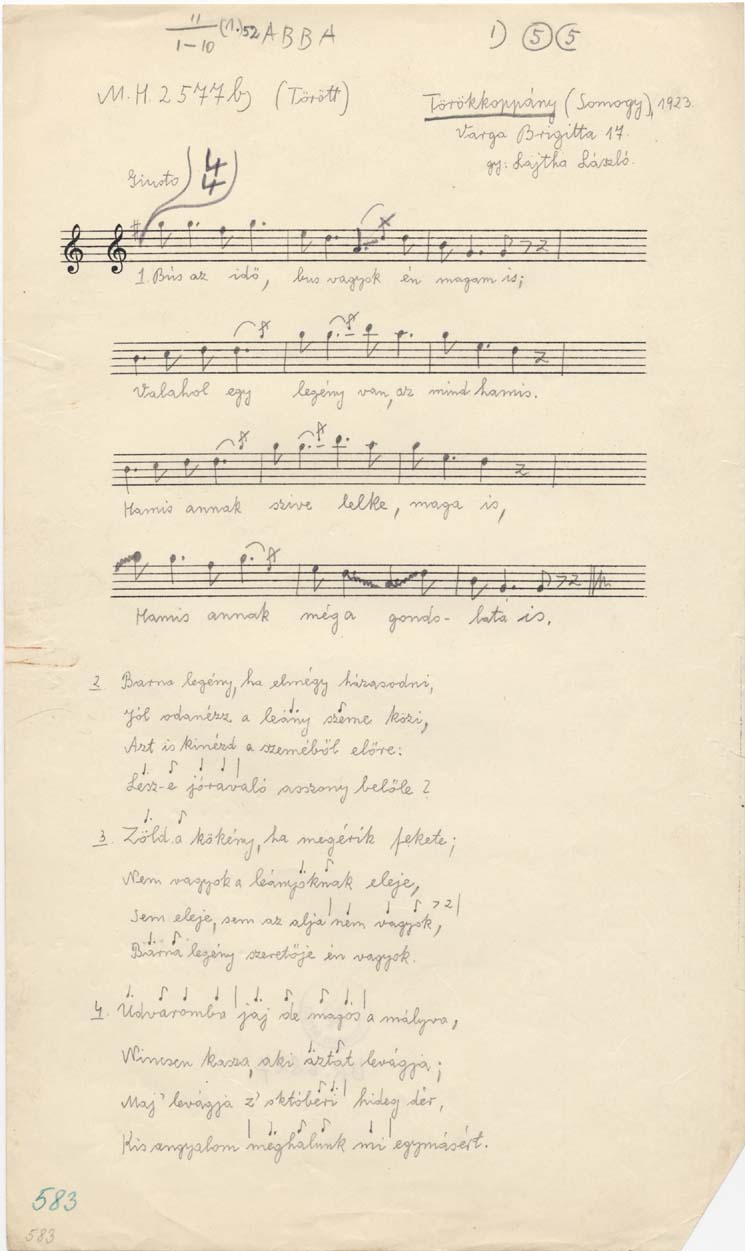 11
1-10 (1.) 52 ABBA
1) 5 5
M.H. 2577 b) (Törött)
Törökkoppány (Somogy), 1923.
Varga Brigitta 17.
gy: Lajtha László.
Giusto 4
4
1. Bús az idő, bus vagyok én magam is;
Valahol egy legény van, az mind hamis.
Hamis annak szive lelke, maga is,
Hamis annak még a gondo- lata is.
2 Barna legény, ha elmégy házasodni,
Jól odanézz a leány szeme közi,
Azt is kinézd a szeméből előre:
Lesz-e jóravaló asszony belőle?
3. Zöld a kökény, ha megérik fekete;
Nem vagyok a leányoknak eleje,
Sem eleje, sem az alja nem vagyok,
Barna legény szeretője én vagyok.
4. Udvaromba jaj de magos a mályva,
Nincsen kasza, aki aztat levágja;
Maj' levágja z' októberi hideg dér,
Kis angyalom meghalunk mi egymásért.
583
583